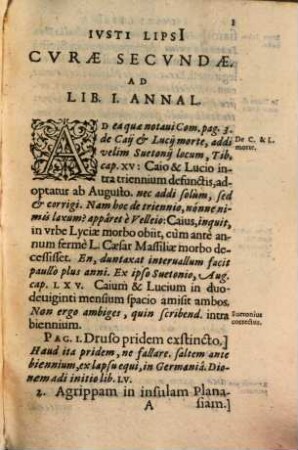 1
IVSTI LIPSI
CVRÆ SECVNDÆ.
AD
LIB. I. ANNAL.
AD ea quæ notaui Com. pag. 3.
de Caij & Lucij morte, addi
velim Suetonij locum, Tib.
cap. XV: Caio & Lucio in-
tra triennium defunctis, ad-
optatur ab Augusto. nec addi solùm, sed
& corrigi. Nam hoc de triennio, nónne ni-
mis laxum? appâret è Velleio: Caius, inquit,
in vrbe Lyciæ morbo obiit, cùm ante an-
num fermè L. Cæsar Massiliæ morbo de-
cessisset. En, duntaxat interuallum facit
paullo plus anni. Ex ipso Suetonio, Aug.
cap. LXV. Caium & Lucium in duo-
deuiginti mensium spacio amisit ambos.
Non ergo ambiges, quin scribend. intra
biennium.
PAG. I. Druso pridem exstincto.]
Haud ita pridem, ne fallare. saltem ante
biennium, ex lapsu equi, in Germaniâ. Dio-
nem adi initio lib. LV.
2. Agrippam in insulam Plana-
A siam.]
De C. & L.
morte.
Suetonius
correctus.